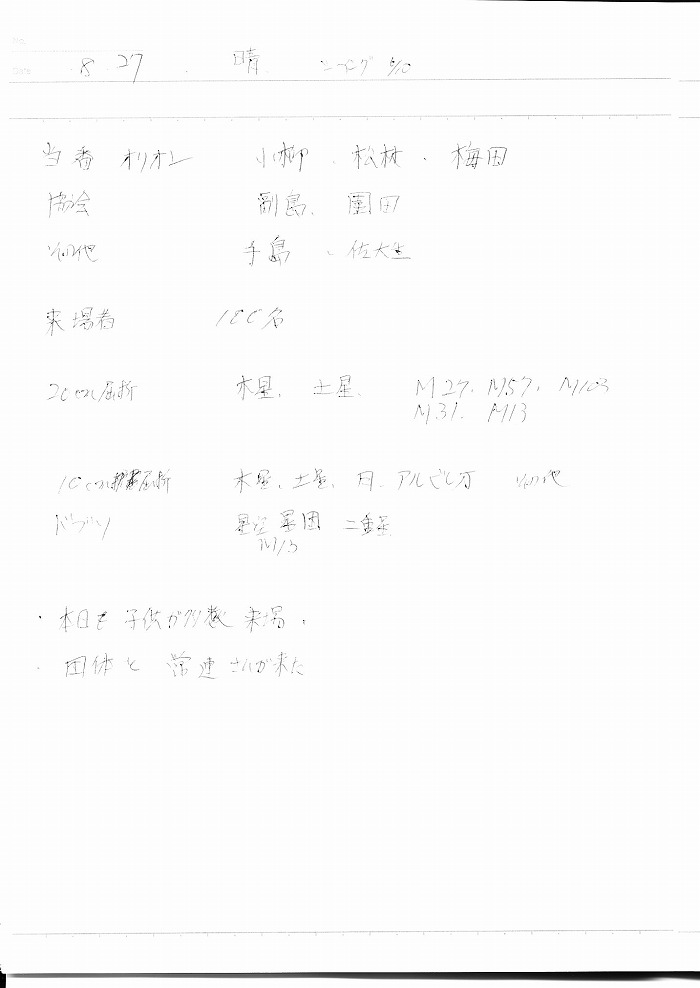 No.
Date 8・27・ 晴 シーイング 6/10
当番 オリオン 小柳、松林、梅田
協会 副島、園田
その他 手島、佐大生
来場者 180名
20cm屈折 木星、土星、M27、M57、M103
M31、M13
10cm屈折 木星、土星、月、アルビレオ その他
ドブソン 星団 二重星
M13
・本日も子供が多数来場。
・団体と常連さんが来た